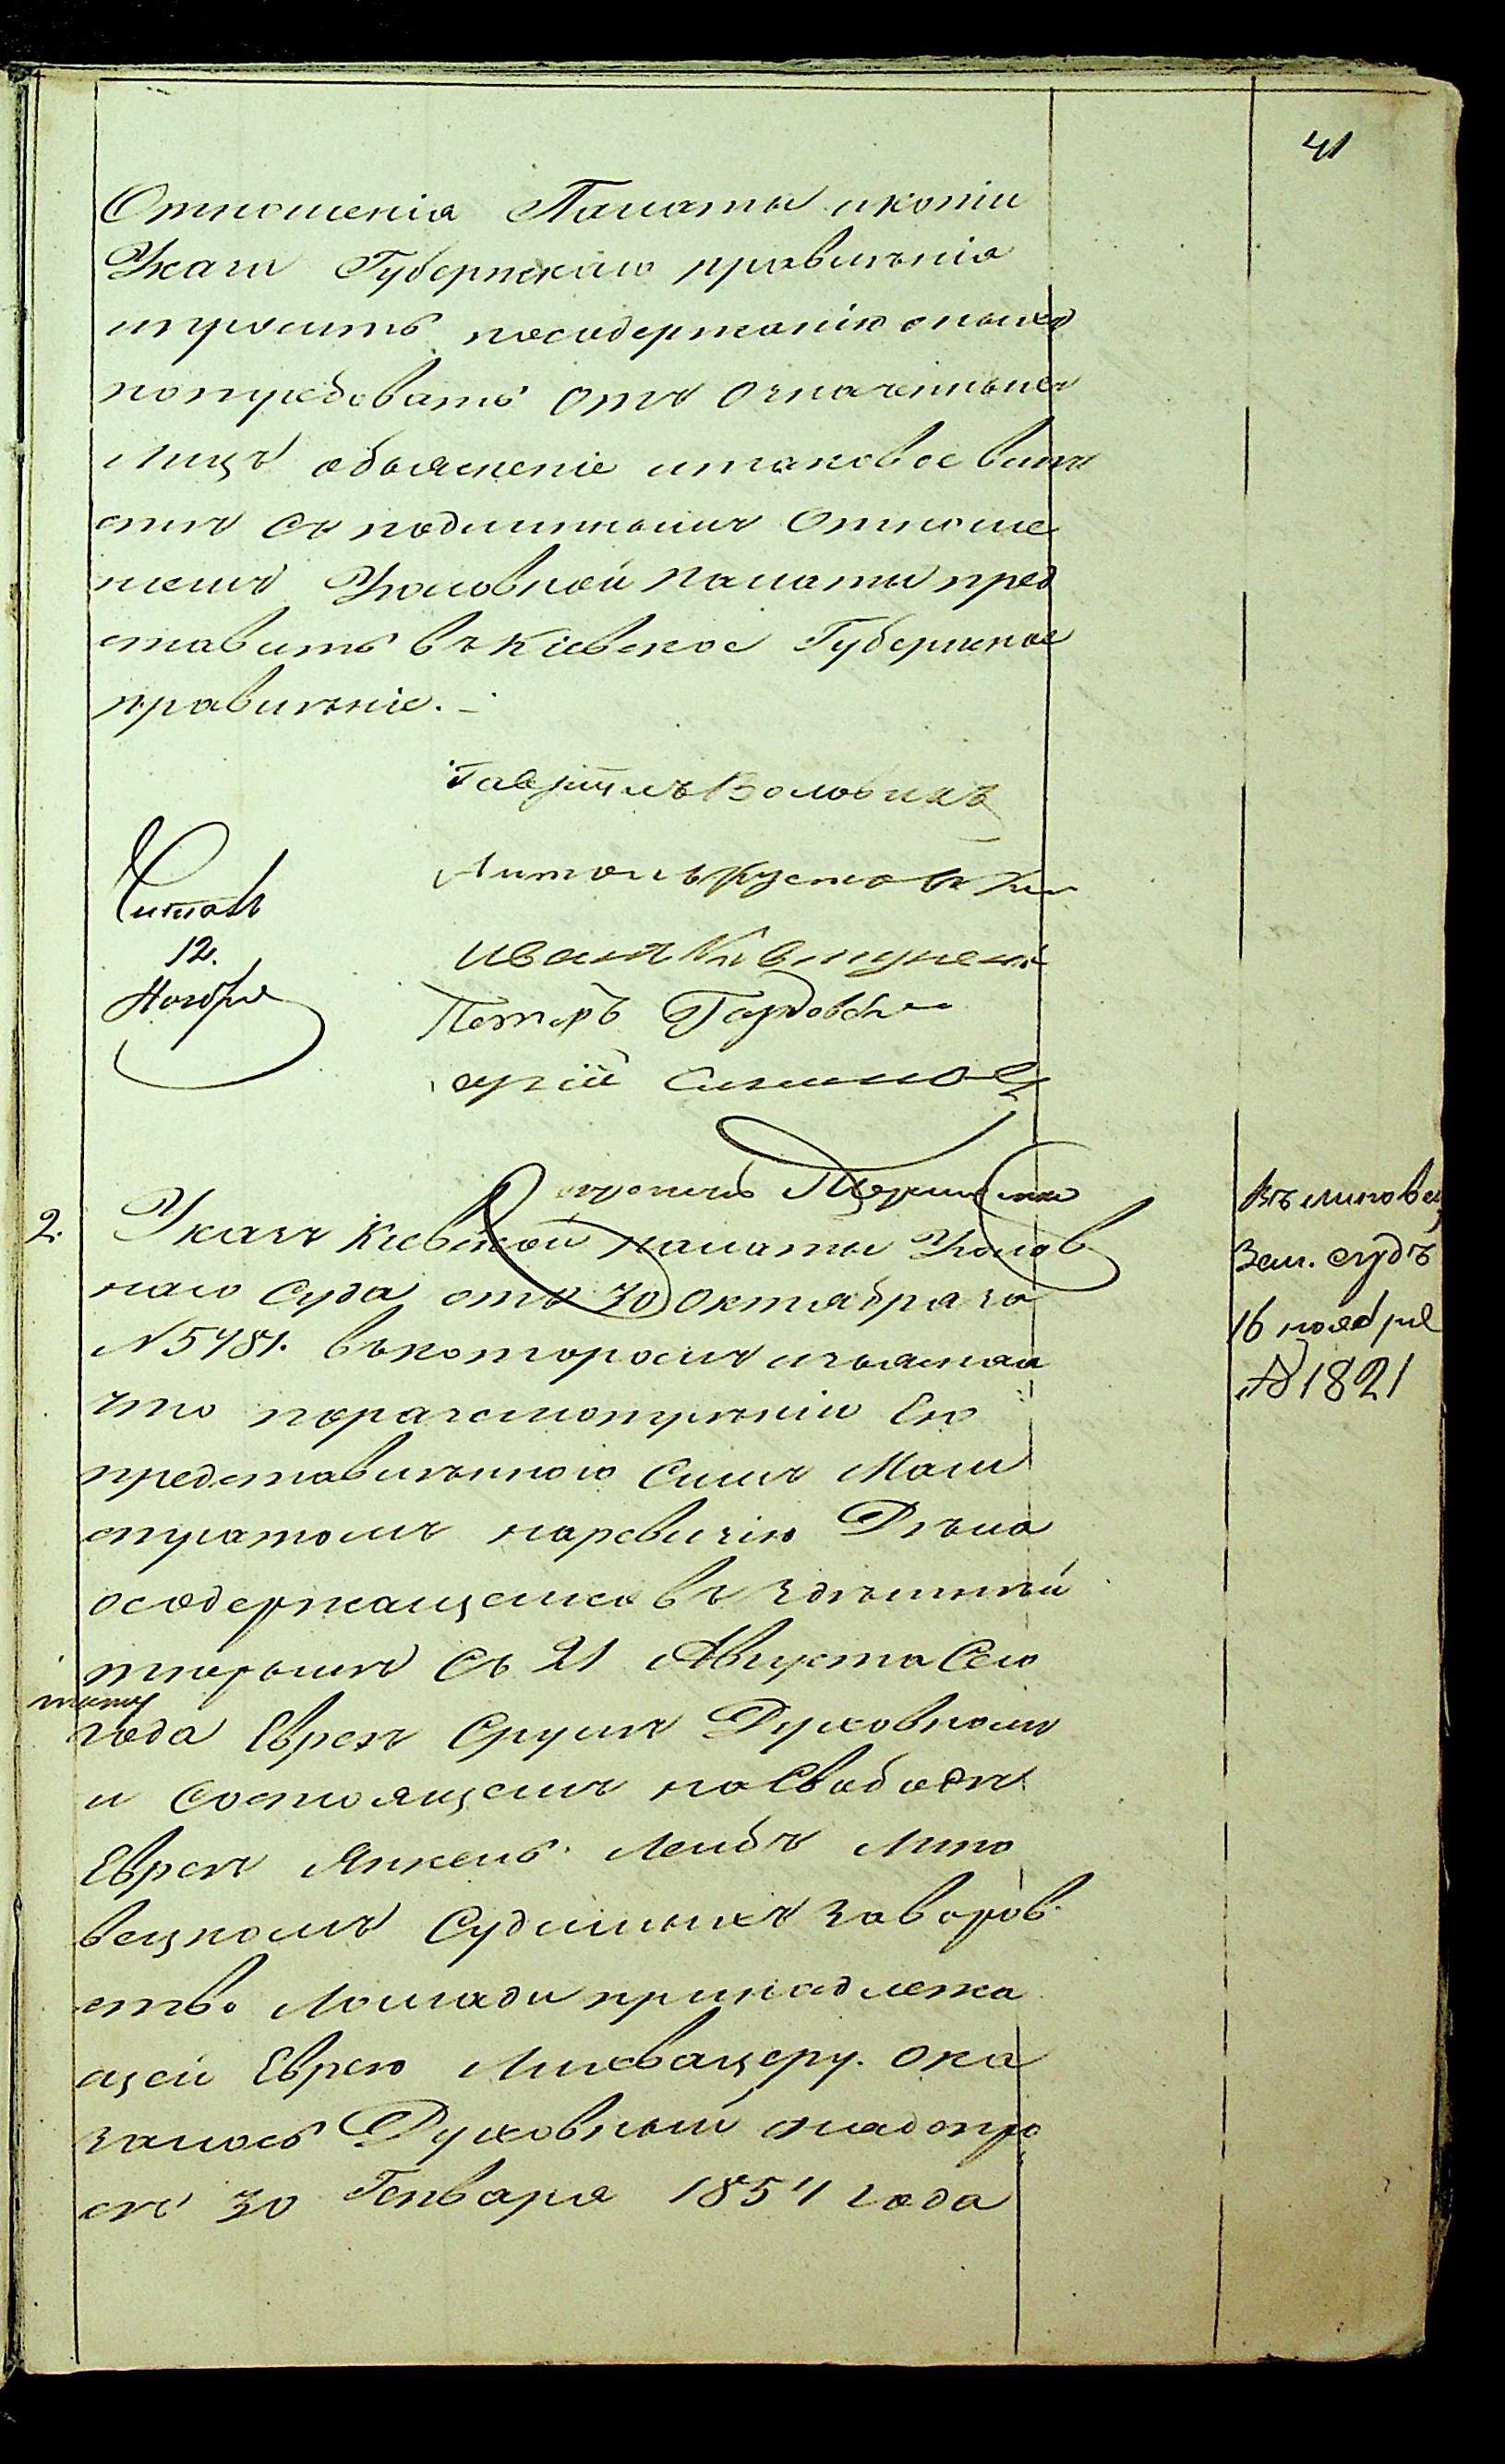 41
Отношенія Палаты икопіи
Указа Губернскаго правленія
ипросить посодержанію оныхъ
потребовать отъ означенныхъ
лицъ объясненіе итаковое вмѣ
стѣ съ подлиннымъ Отноше
ніемъ Уголовной Палаты пред
ставить въ Кіевское Губернское
правленіе. -
Гавріилъ Воловикъ
Антонъ
Иванъ
Петръ
Читалъ
12.
Ноября
2. Указъ Кіевской палаты Уголов
наго Суда отъ 30 Октября за
№ 5481. въкоторомъ изъясняя
что поразсмотреніи Ею
представленнаго Симъ Маги
стратомъ наревизію Дѣла
осодержащемся въ здѣшней
тюрьмѣ Съ 21 Августа Сего
года Евреѣ Сруль Духовномъ
и Состоящемъ на Свободѣ
Евреѣ Янкель Лейбѣ Липо
вецкомъ Судимыхъ заворов
ство Лошади принадлежа
щей Еврею Лихвацеру. Ока
залось Духовный надопро
сѣ 30 Генваря 1854 года
Въ липовец
Зем. судъ
16 ноября
№ 1821